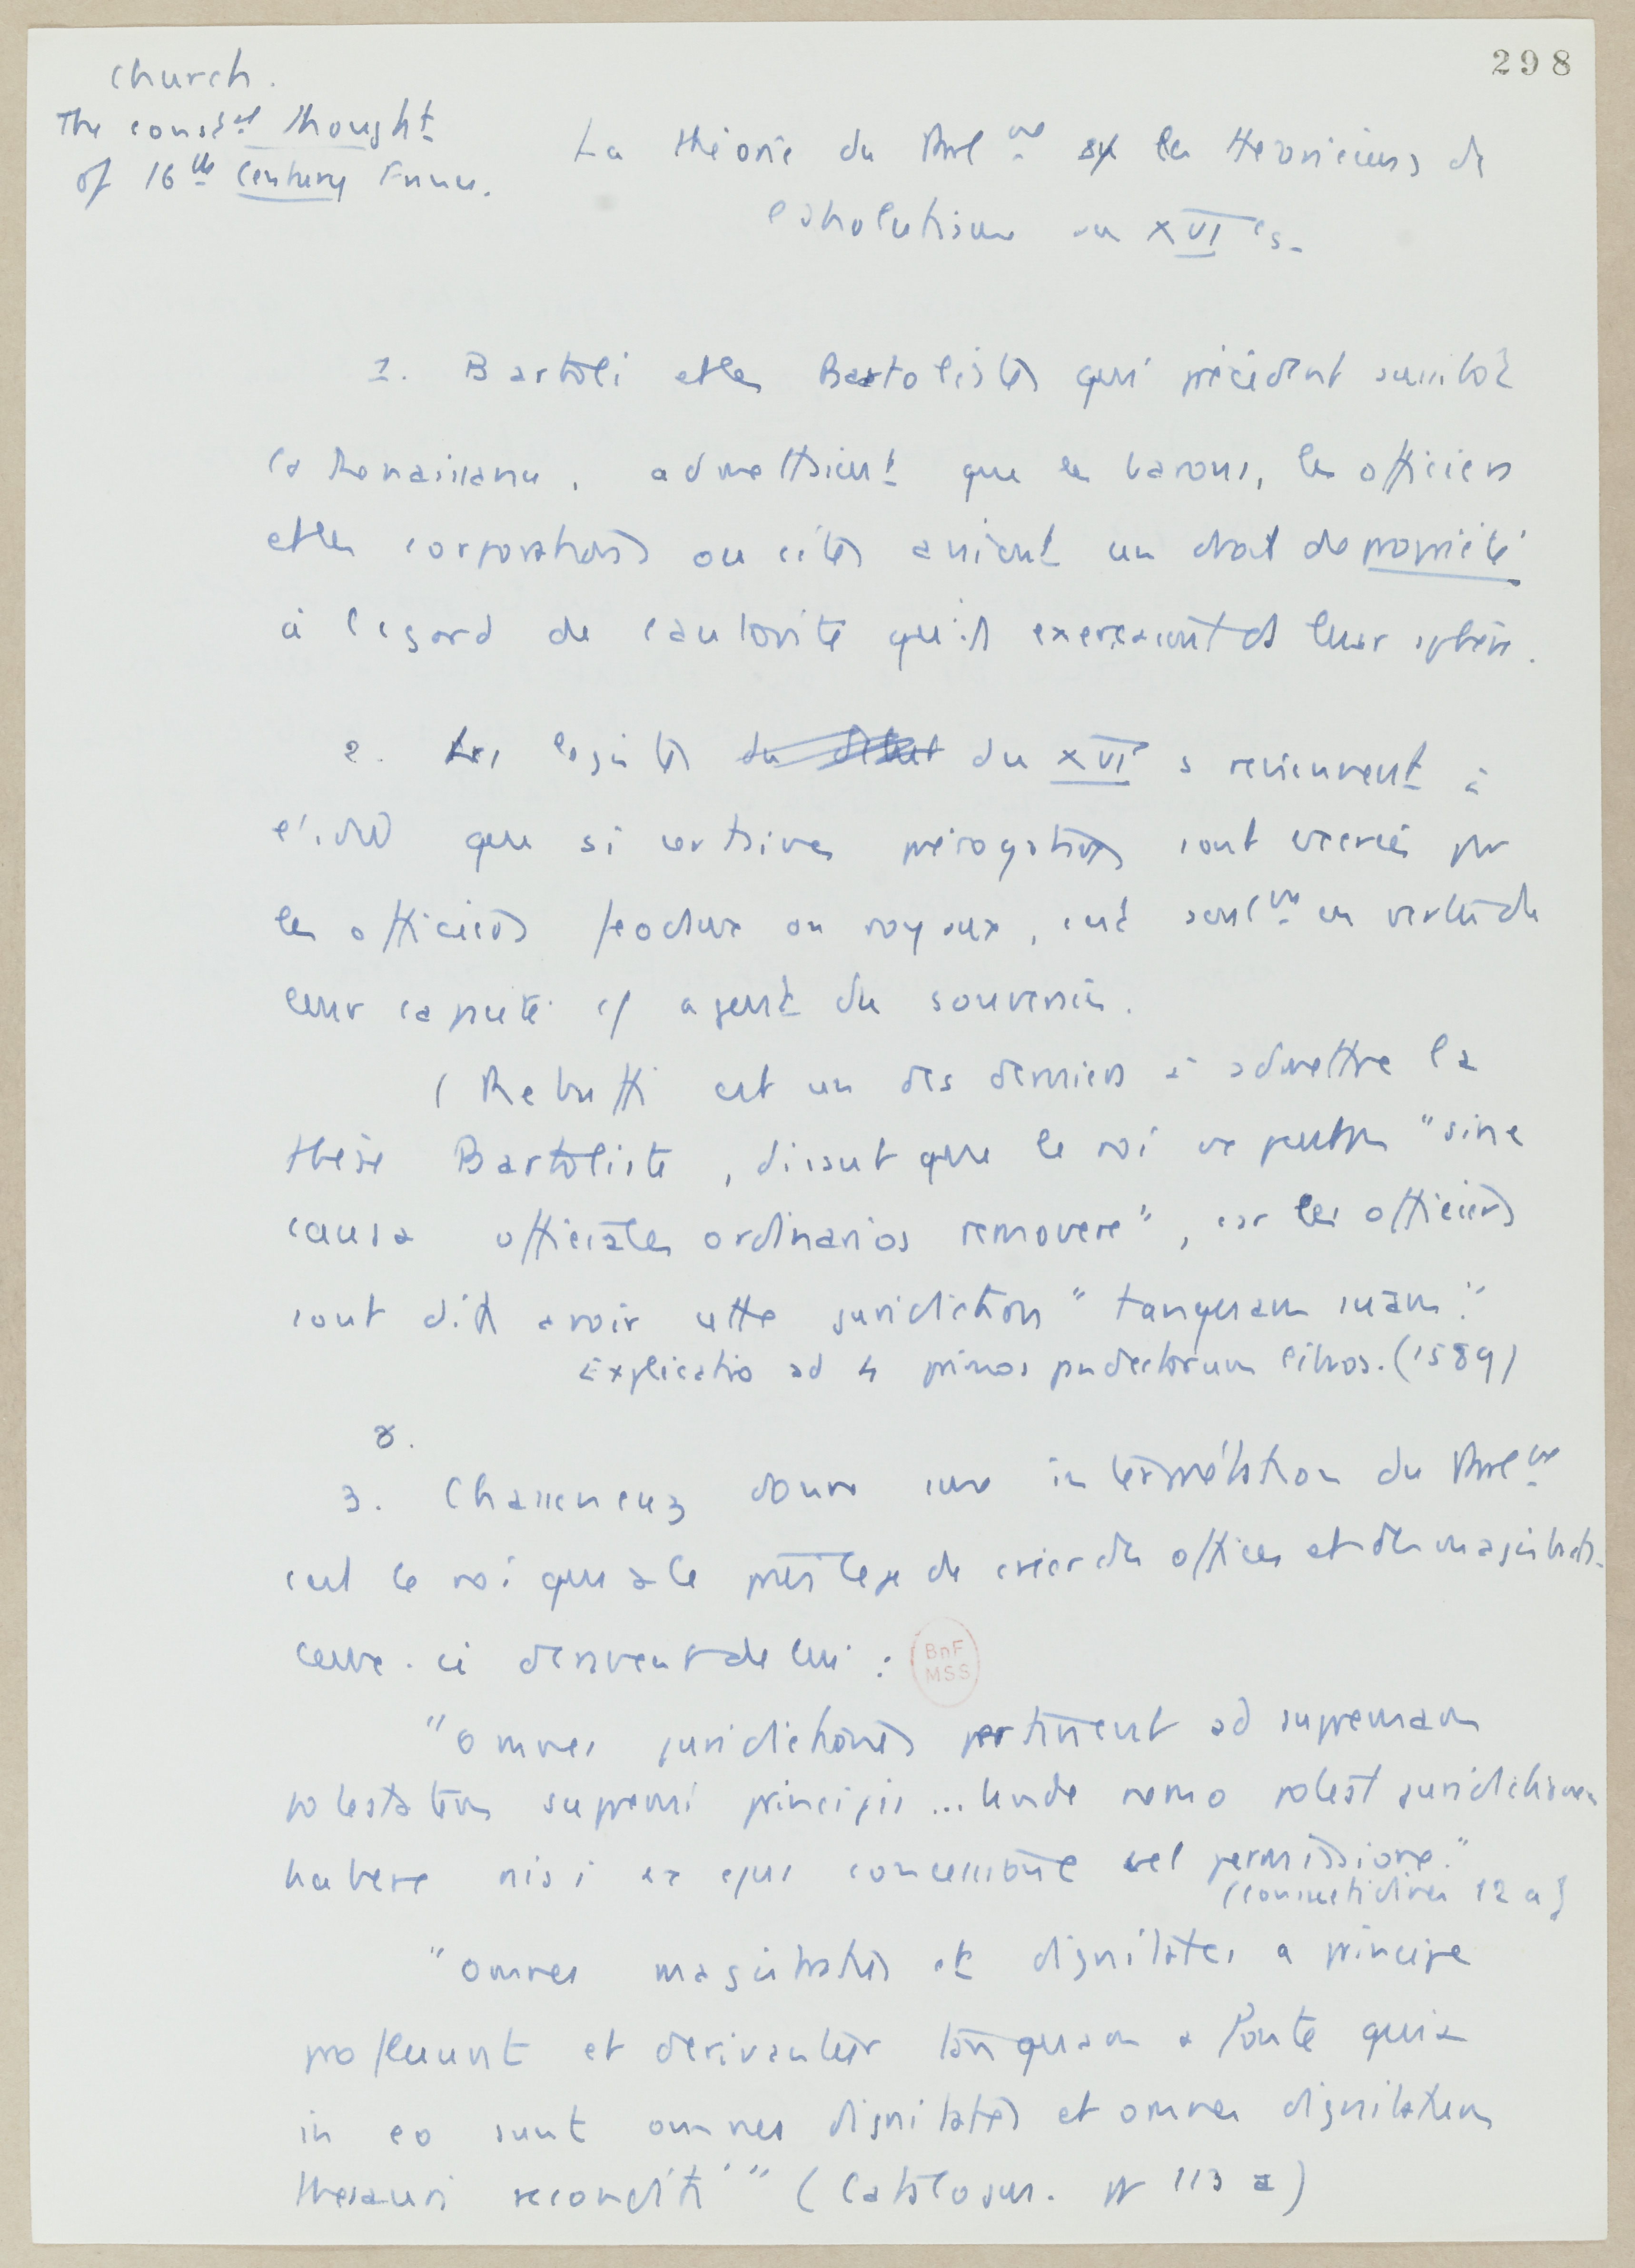 298
Church.
The const.el thought
of 16th Century France.
La théorie du Parl.nt les théoriciens de
l'absolutisme au XVIe s.
1. Bartoli et les Bartolistes qui précèdent aussitôt
la Renaissance, admettaient que les barons, les officiers
et les corporations ou cités avaient un droit de propriété
à l'égard de l'autorité qu'ils exerçaient ds leur sphère.
2. Les légistes du début du XVI s reviennent à
l'idée que si certaines prérogatives sont exercées par
les officiers féodaux ou royaux, c'est seul.nt en vertu de
leur capacité c/ agent du souverain.
(Rebuffi est un des derniers à admettre la
thèse Bartoliste, disant que le roi ne peut pas "sine
causa officiales ordinarios removere", car les officiers
sont dits avoir cette juridiction "tanquam suam."
Explicatio ad 4 primos pandectorum libros. (1589)
8.
3. Chasseneuz donne une interprétation du Parl.nt
c'est le roi qui a le privilège de créer des offices et des magistrats.
ceux-ci dérivent de lui :
BnF
MSS
"Omnes juridictiones pertinent ad supremam
potestatem supremi principis ... Unde nemo potest juridictionem
habere nisi ex ejus concessione vel permissione."
(consuetudines 12 a)
"omnes magistratus et dignitates a principe
profluunt et derivantur tanquam a fonte quia
in eo sunt omnes dignitates et omnes dignitatum
thesauri reconditi" (Catal. 113 a)